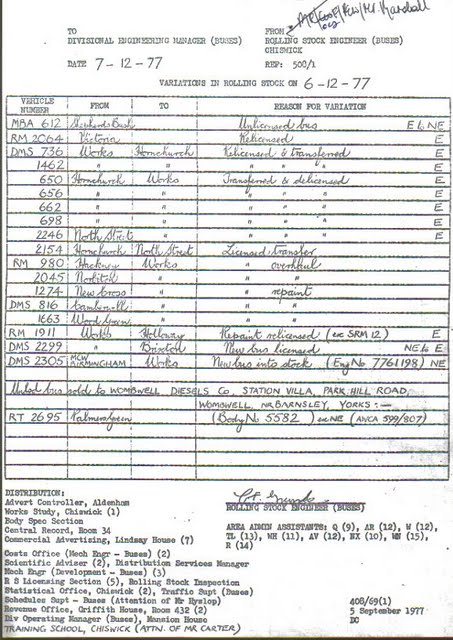 Mr. Marshall
TO FROM
DIVISIONAL ENGINEERING MANAGER (BUSES) ROLLING STOCK ENGINEER (BUSES)
CHISWICK
DATE 7-12-77 REF: 500/1
VARIATIONS IN ROLLING STOCK ON 6-12-77
VEHICLE NUMBER FROM TO REASON FOR VARIATION
MBA 612 Shepherds Bush Unlicensed bus E to NE
RM 2064 Victoria Relicensed E
DMS 736 Works Hornchurch Relicensed & transferred E
1462 " " " " " E
650 Hornchurch Works Transferred & delicensed E
656 " " " " " E
662 " " " " " E
698 " " " " " E
2246 North Street " " " " E
2154 Hornchurch North Street Licensed transfer
RM 980 Hackney Works " overhaul
2045 Norbiton " " "
1274 New Cross " " repaint
DMS 816 Camberwell " " "
1663 Wood Green " " "
RM 1911 Works Holloway Repaint relicensed (exc SRM 12) E
DMS 2299 " Brixton New bus licensed NE to E
DMS 2305 MCW BIRMINGHAM Works New bus into stock (Eng No 7761198) NE
bus sold to WOMBWELL DIESELS Co, STATION VILLA, PARK HILL ROAD,
WOMBWELL, NR BARNSLEY, YORKS :—
RT 2695 Palmers Green (Body No 5582) ex NE (AVCA 599/807)
DISTRIBUTION:
Advert Controller, Aldenham
Works Study, Chiswick (1)
Body Spec Section
Central Record, Room 34
Commercial Advertising, Lindsay House (7)
Costs Office (Mech Engr - Buses) (2)
Scientific Adviser (2), Distribution Services Manager
Mech Engr (Development - Buses) (3)
R S Licensing Section (5), Rolling Stock Inspection
Statistical Office, Chiswick (2), Traffic Supt (Buses)
Schedules Supt - Buses (Attention of Mr Hyslop)
Revenue Office, Griffith House, Room 432 (2)
Div Operating Manager (Buses), Mansion House
TRAINING SCHOOL, CHISWICK (ATTN. OF MR CARTER)
ROLLING STOCK ENGINEER (BUSES)
AREA ADMIN ASSISTANTS: Q (9), AR (12), W (12),
TL (13), WH (11), AV (12), NX (10), WN (15),
R (14)
408/69(1)
5 September 1977
DC